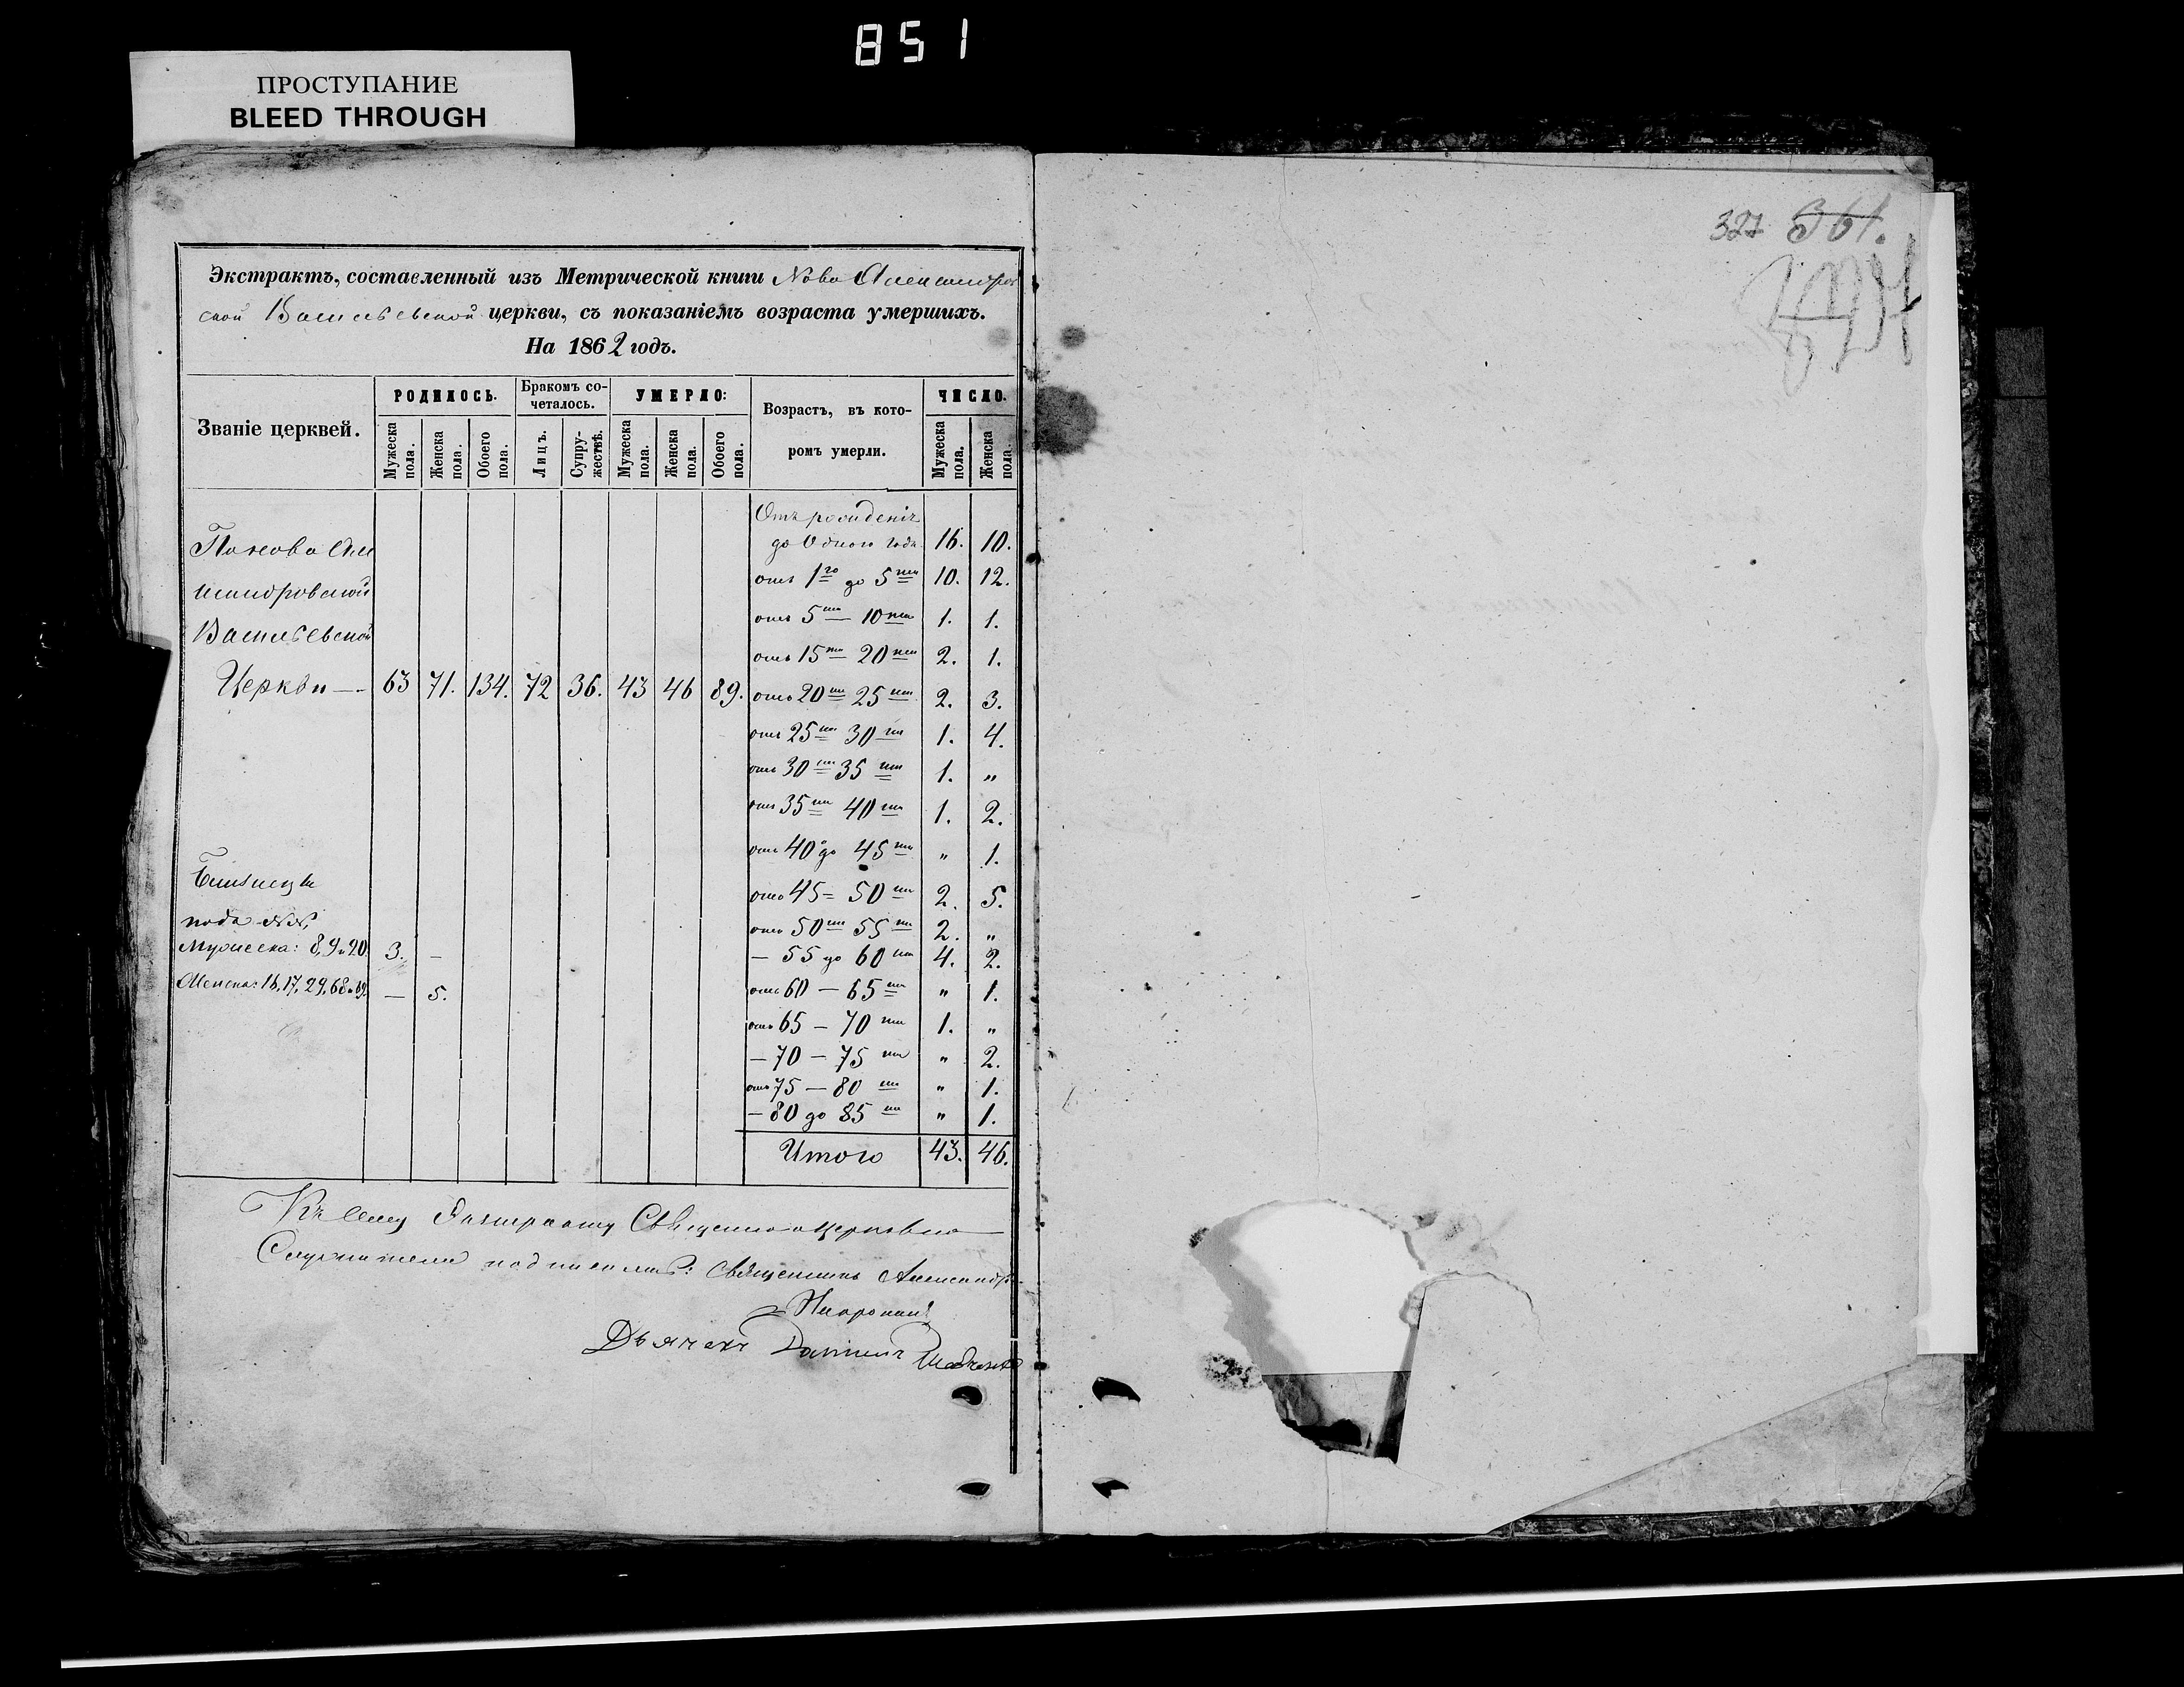 851
ПРОСТУПАНИЕ
BLEED THROUGH
327 361.
Экстрактъ, составленный изъ Метрической книги Ново Александров
ской Васильевской церкви, съ показаніемъ возраста умершихъ.
На 1862 годъ.
Званіе церквей.
РОДИЛОСЬ.
Мужеска пола.
Женска пола.
Обоего пола.
Бракомъ со-
четалось.
Лицъ.
Супру-
жествъ.
УМЕРЛО:
Мужеска пола.
Женска пола.
Обоего пола.
Возрастъ, въ кото-
ромъ умерли.
ЧИСЛО.
Мужеска пола.
Женска пола.
Отъ рожденія
до Одного года 16. 10.
отъ 1го до 5ти 10. 12.
отъ 5ти — 10ти 1. 1.
отъ 15ти 20ти 2. 1.
По Ново Але
ксандровской
Васильевской
Церкви — 63 71. 134. 72 36. 43 46 89. отъ 20ти 25ти 2. 3.
отъ 25ти 30ти 1. 4.
отъ 30ти 35ти 1. "
отъ 35ти 40ти 1. 2.
отъ 40 до 45ти " 1.
отъ 45 = 50ти 2. 5.
отъ 50ти 55ти 2. "
— 55 до 60ти 4. 2.
отъ 60 — 65ти " 1.
отъ 65 — 70ти 1. "
— 70 — 75ти " 2.
отъ 75 — 80ти " 1.
— 80 до 85ти " 1.
Итого 43. 46.
Близнецы
подъ №№,
Мужеска: 8, 9 и 20. 3. —
Женска: 16, 17, 29, 68 и 69. — 5.
Къ сему Экстракту Священно церковно
Служители подписались: Священникъ Александръ
Дьячекъ Даниилъ